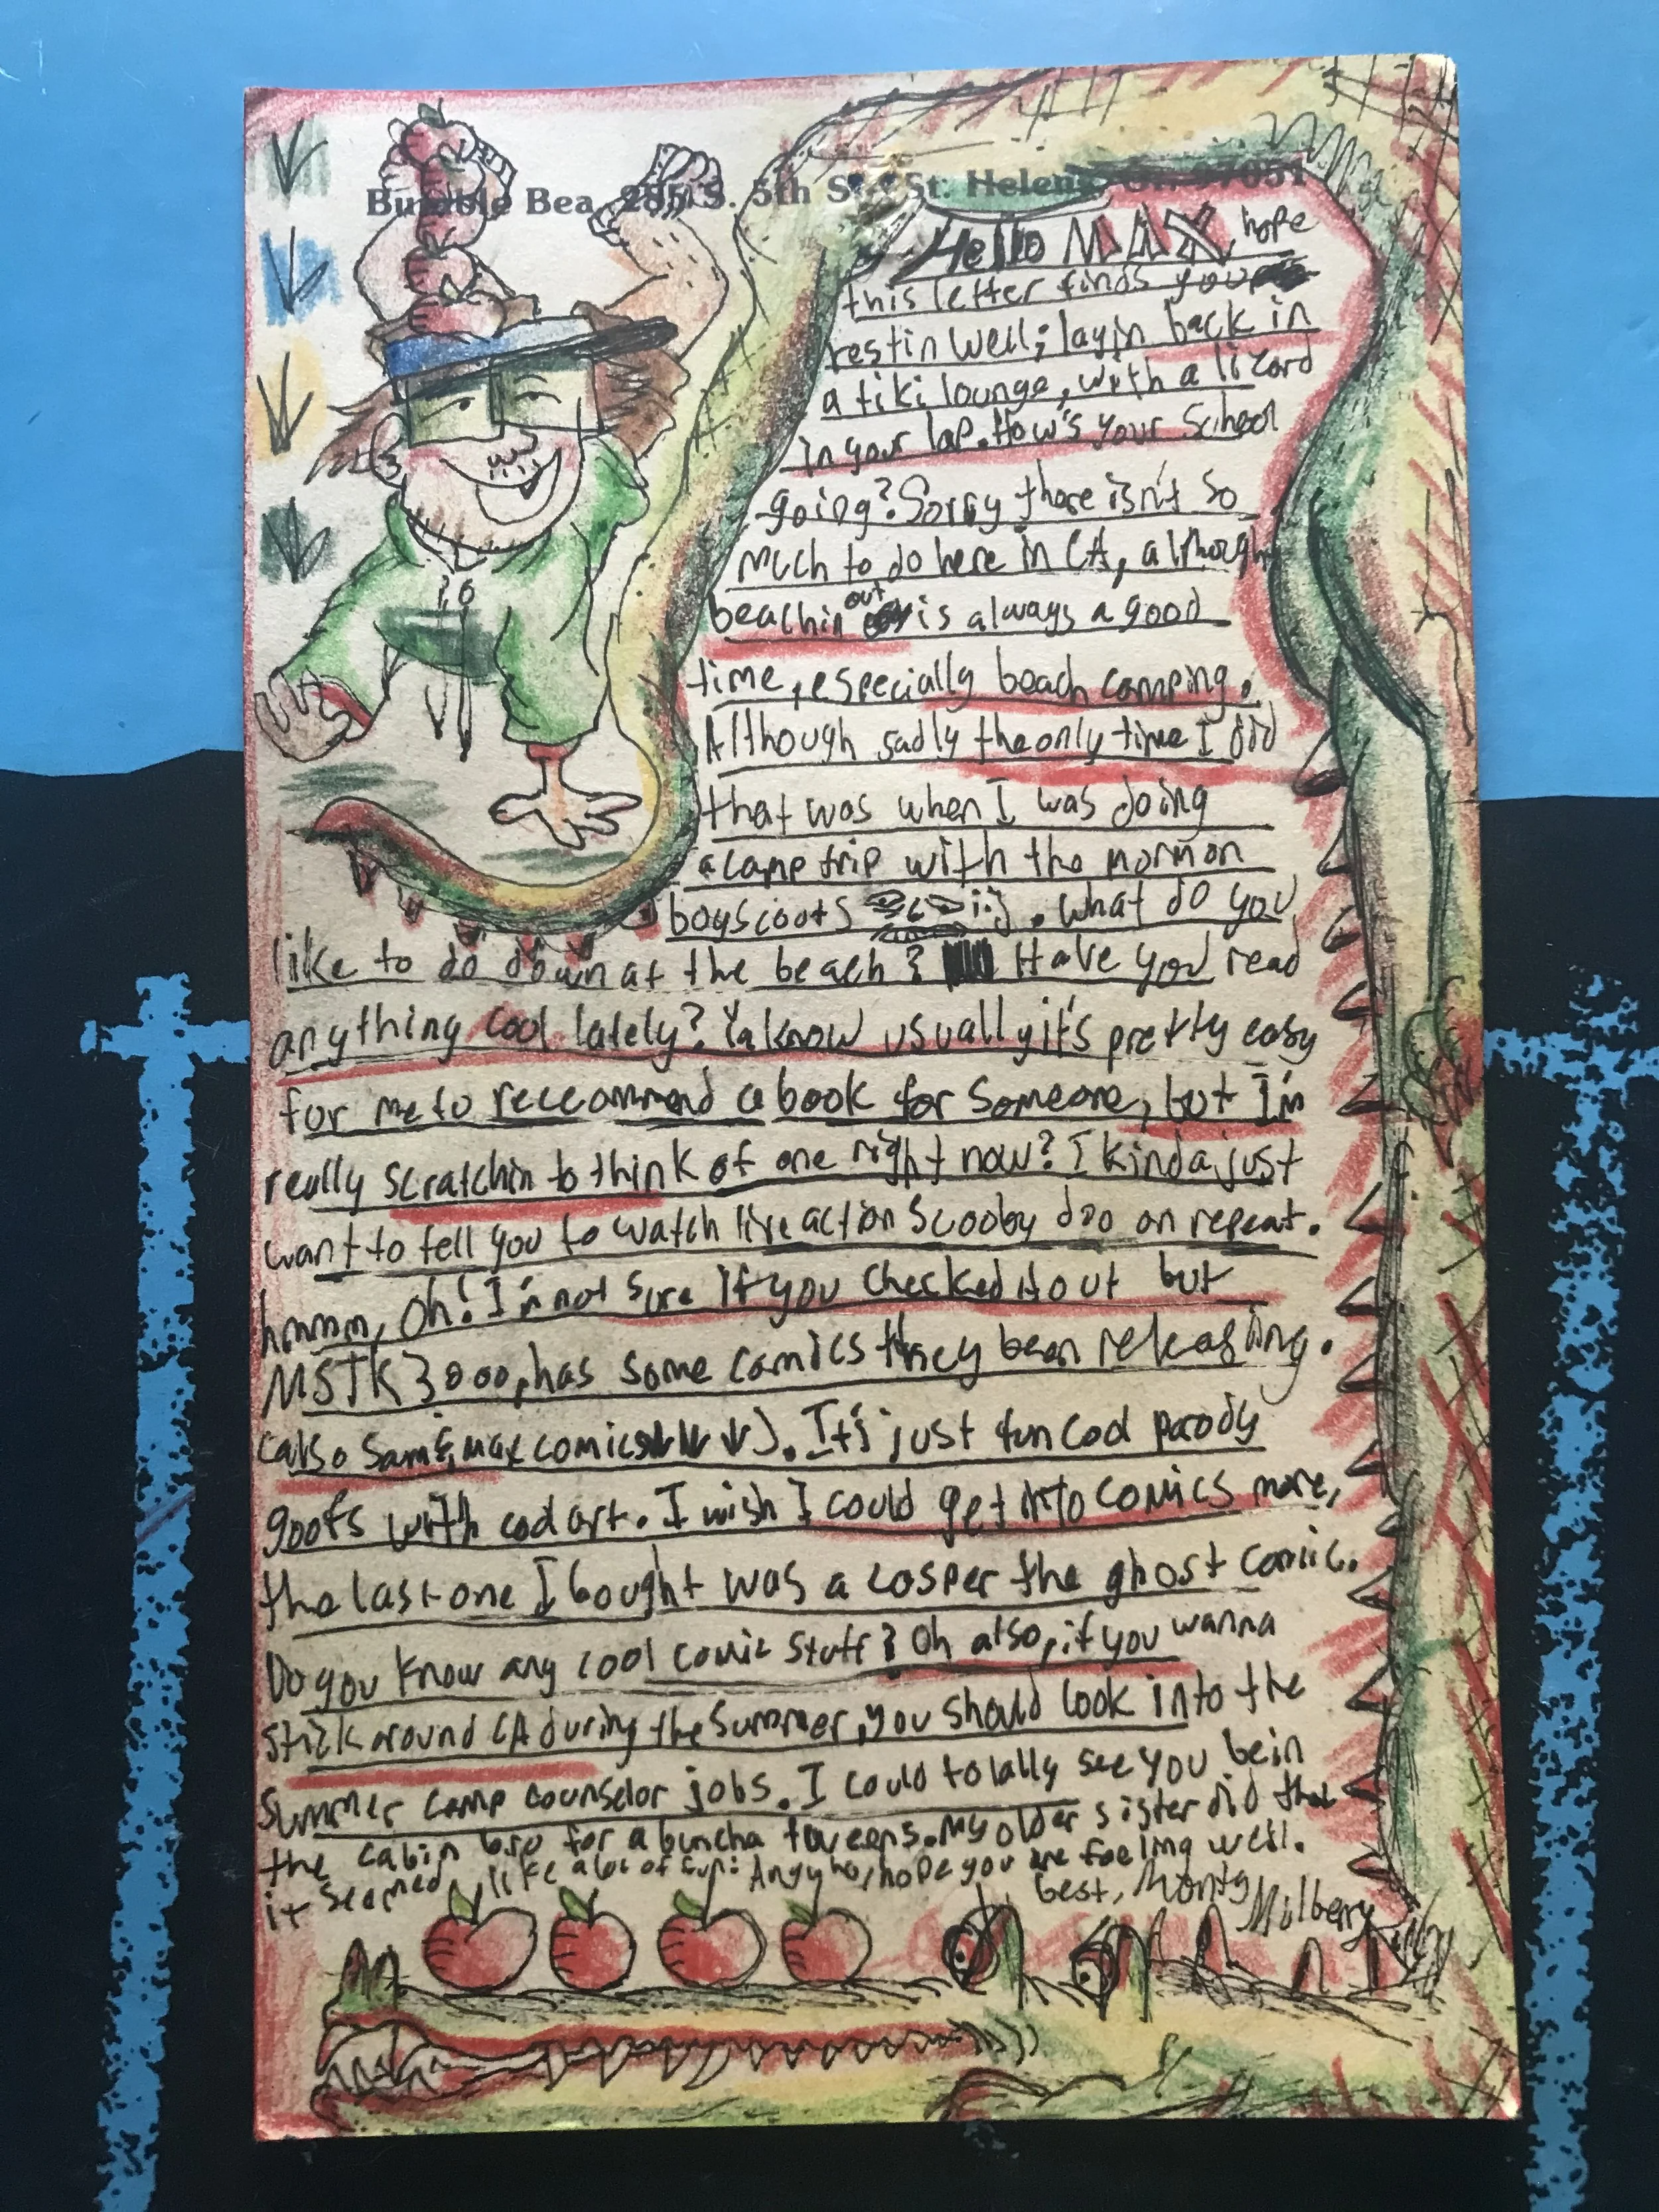 Bumble Bea 285 S. 5th St. St. Helens Or. 97051
Hello MAX, hope
this letter finds you
restin well; layin back in
a tiki lounge, with a lizard
in your lap. How's your School
going? Sorry there isn't so
much to do here in CA, although
beachin out is always a good
time, especially beach camping.
Although sadly the only time I did
that was when I was doing
a camp trip with the mormon
boyscoots :). What do you
like to do down at the beach? Have you read
anything cool lately? Ya know usually it's pretty easy
for me to reccommend a book for someone, but I'm
really scratchin to think of one right now? I kinda just
want to tell you to watch live action Scooby doo on repeat.
hmmm, Oh! I'm not sure if you checked it out but
MSTK3000, has some comics they been releasing.
(also Sam & max comics). It's just fun cool parody
goofs with cool art. I wish I could get into comics more,
the last one I bought was a casper the ghost comic.
Do you know any cool comic stuff? Oh also, if you wanna
stick around CA during the summer, you should look into the
summer camp counselor jobs. I could totally see you bein
the cabin bro for a buncha tweens. My older sister did that
it seemed like a lot of fun! hope you are feeling well.
best, Monty
Mulberry